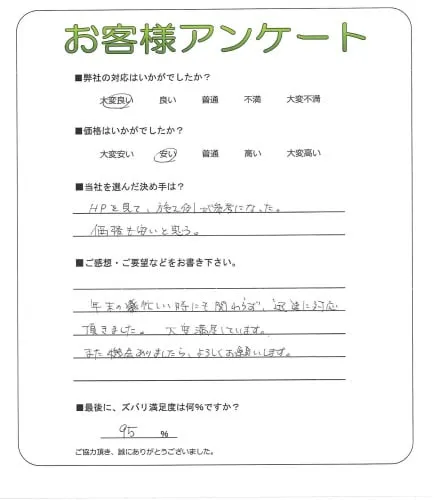 お客様アンケート
■弊社の対応はいかがでしたか?
大変良い 良い 普通 不満 大変不満
■価格はいかがでしたか?
大変安い 安い 普通 高い 大変高い
■当社を選んだ決め手は?
HPを見て、施工例が参考になった。
価格も安いと思う。
■ご感想・ご要望などをお書き下さい。
年末の忙しい時にも関わらず、迅速に対応
頂きました。 大変満足しています。
また機会ありましたら、よろしくお願いします。
■最後に、ズバリ満足度は何%ですか?
95 %
ご協力頂き、誠にありがとうございました。